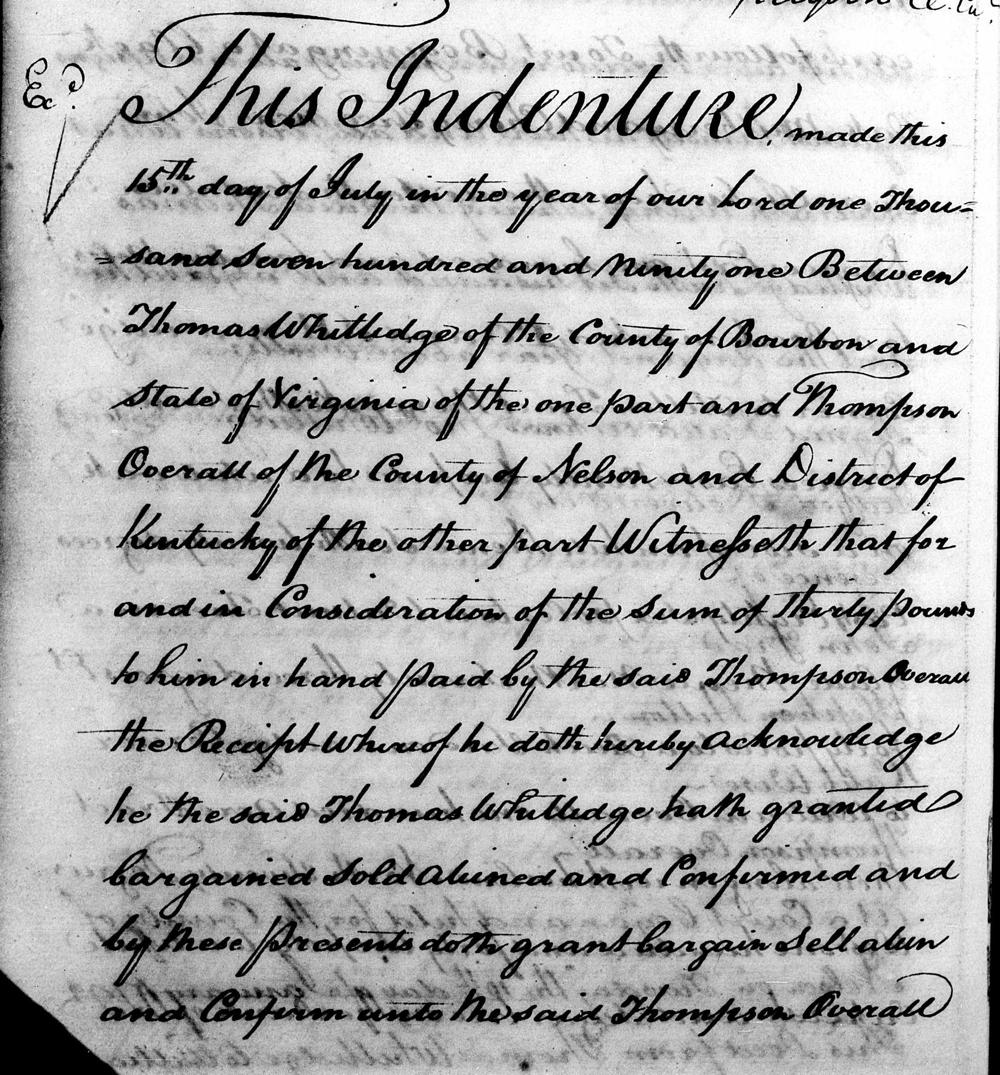 Exd.
This Indenture, made this
15th day of July in the year of our Lord one Thou=
=sand Seven hundred and Ninity one Between
Thomas Whitledge of the County of Bourbon and
State of Virginia of the one part and Thompson
Overall of the County of Nelson and District of
Kentucky of the other part Witnesseth that for
and in Consideration of the Sum of thirty pounds
to him in hand paid by the said Thompson Overall
the Receipt whereof he doth hereby acknowledge
he the said Thomas Whitledge hath granted
bargained Sold aliened and Confirmed and
by these presents doth grant bargain Sell alien
and Confirm unto the said Thompson Overall